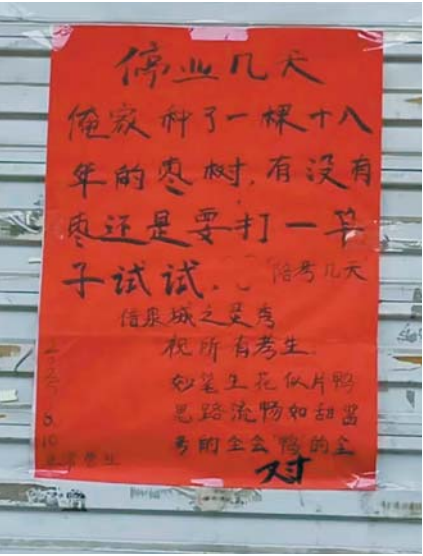 停业几天
俺家种了一棵十八
年的枣树,有没有
枣还是要打一竿
子试试.
陪考几天
借泉城之灵秀
祝所有考生
妙笔生花似片鸭
思路流畅如甜酱
考的全会 鸭的全
对
6.10
正常营业